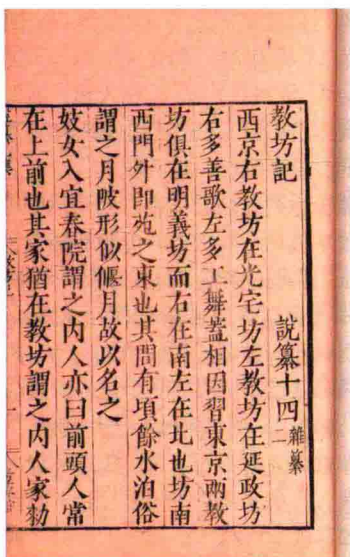 教坊記
說纂十四 雜纂二
西京右教坊在光宅坊左教坊在延政坊
右多善歌左多工舞蓋相因習東京兩教
坊俱在明義坊而右在南左在北也坊南
西門外即苑之東也其間有頃餘水泊俗
謂之月陂形似偃月故以名之
妓女入宜春院謂之内人亦曰前頭人常
在上前也其家猶在教坊謂之内人家勑